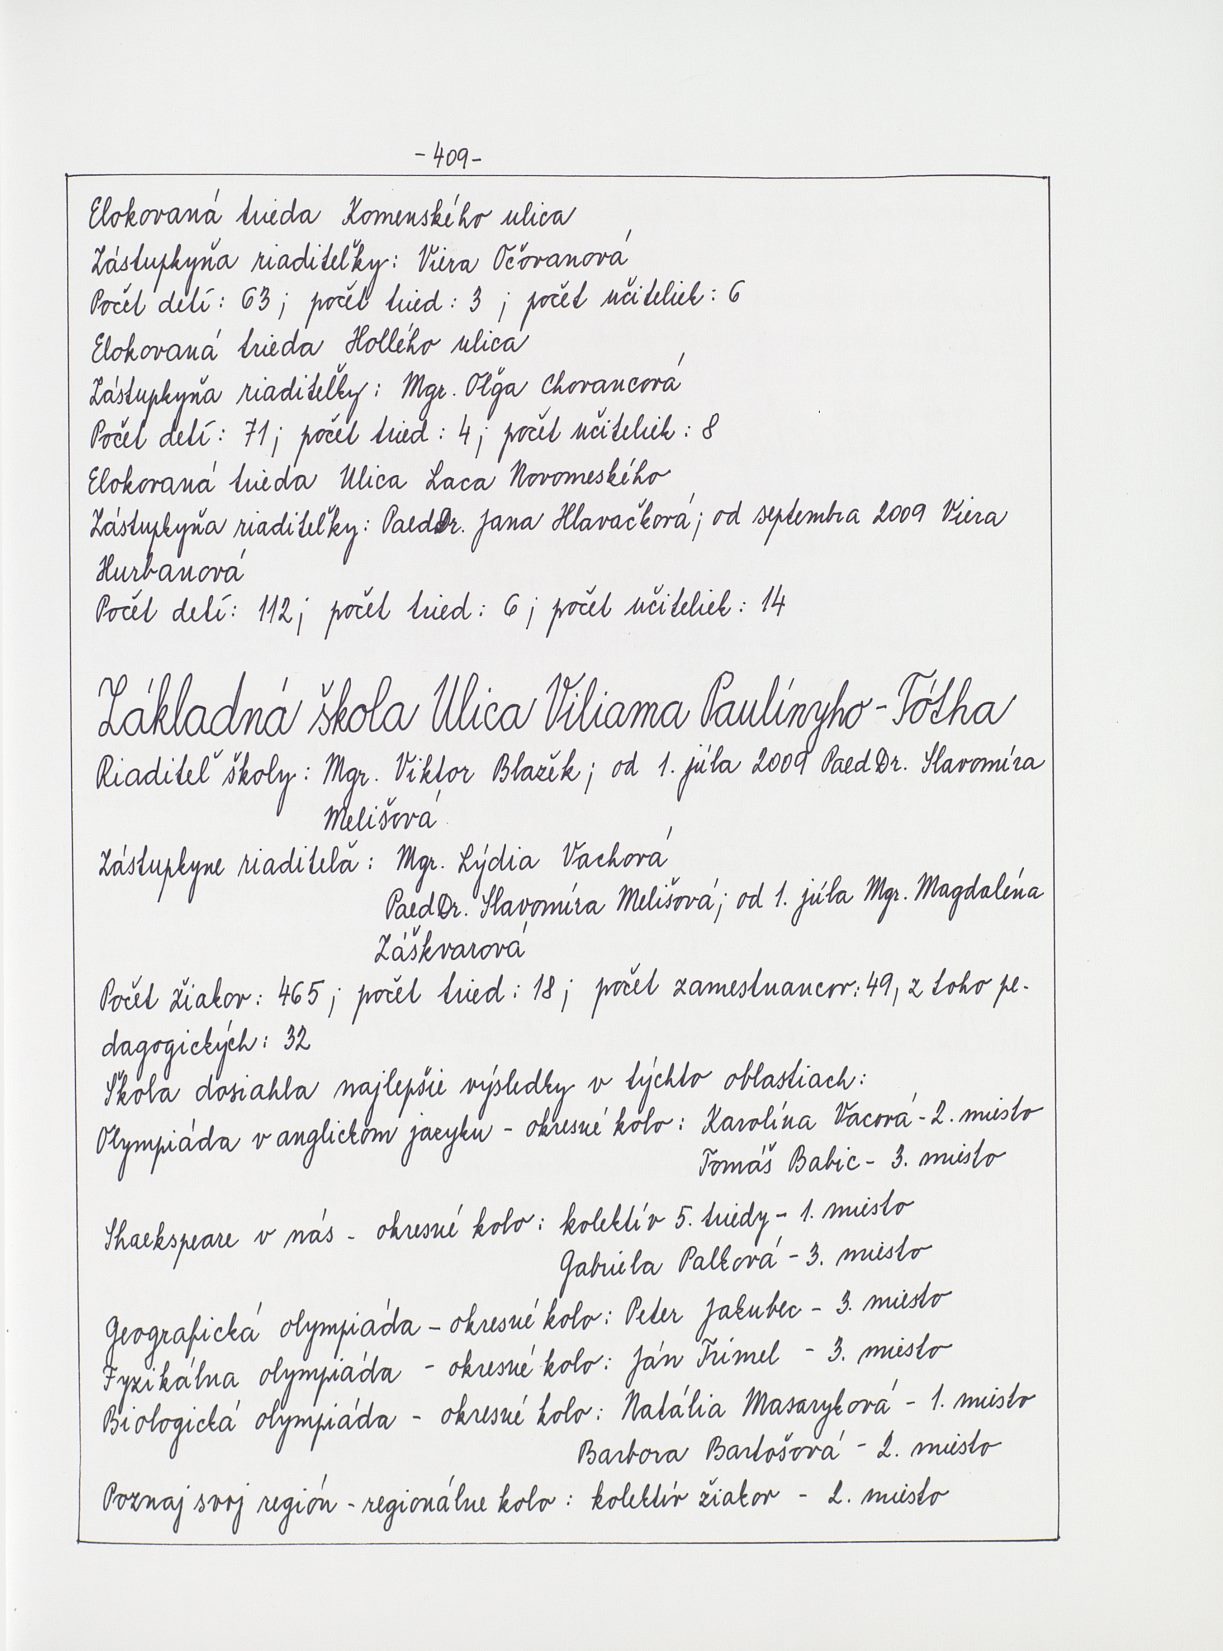 - 409 -
Elokovaná trieda Komenského ulica
Zástupkyňa riaditeľky: Viera Očovanová
Počet detí: 63; počet tried: 3; počet učiteliek: 6
Elokovaná trieda Hollého ulica
Zástupkyňa riaditeľky: Mgr. Oľga Chovancová
Počet detí: 71; počet tried: 4; počet učiteliek: 8
Elokovaná trieda Ulica Laca Novomeského
Zástupkyňa riaditeľky: PaedDr. Jana Hlavačková; od septembra 2009 Viera
Hurbanová
Počet detí: 112; počet tried: 6; počet učiteliek: 14
Základná škola Ulica Viliama Paulínyho-Tótha
Riaditeľ školy: Mgr. Viktor Blažek; od 1. júla 2009 PaedDr. Slavomíra
Melišová
Zástupkyne riaditeľa: Mgr. Lýdia Vachová
PaedDr. Slavomíra Melišová; od 1. júla Mgr. Magdaléna
Záškvarová
Počet žiakov: 465; počet tried: 18; počet zamestnancov: 49, z toho pe-
dagogických: 32
Škola dosiahla najlepšie výsledky v týchto oblastiach:
Olympiáda v anglickom jazyku - okresné kolo: Karolína Vacová - 2. miesto
Tomáš Babic - 3. miesto
Shaekspeare v nás - okresné kolo: kolektív 5. triedy - 1. miesto
Gabriela Palková - 3. miesto
Geografická olympiáda - okresné kolo: Peter Jakubec - 3. miesto
Fyzikálna olympiáda - okresné kolo: Ján Trimel - 3. miesto
Biologická olympiáda - okresné kolo: Natália Masaryková - 1. miesto
Barbora Bartošová - 2. miesto
Poznaj svoj región - regionálne kolo: kolektív žiakov - 2. miesto